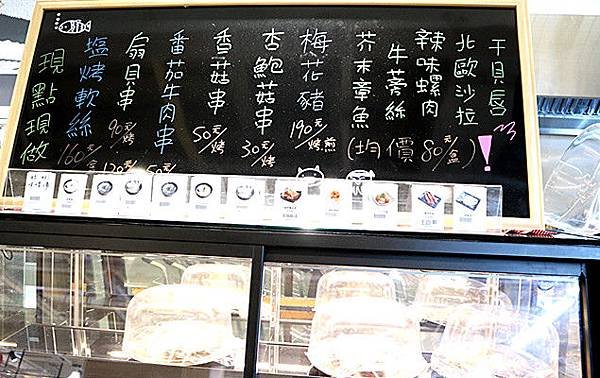 干貝唇
北歐沙拉
辣味螺肉
牛蒡絲
芥末章魚
(均價80元/盒)
梅花豬
190元/烤煎
杏鮑菇串
30元/烤
香菇串
50元/烤
番茄牛肉串
扇貝串
90元/烤
塩烤軟絲
160元/盒
現點現做